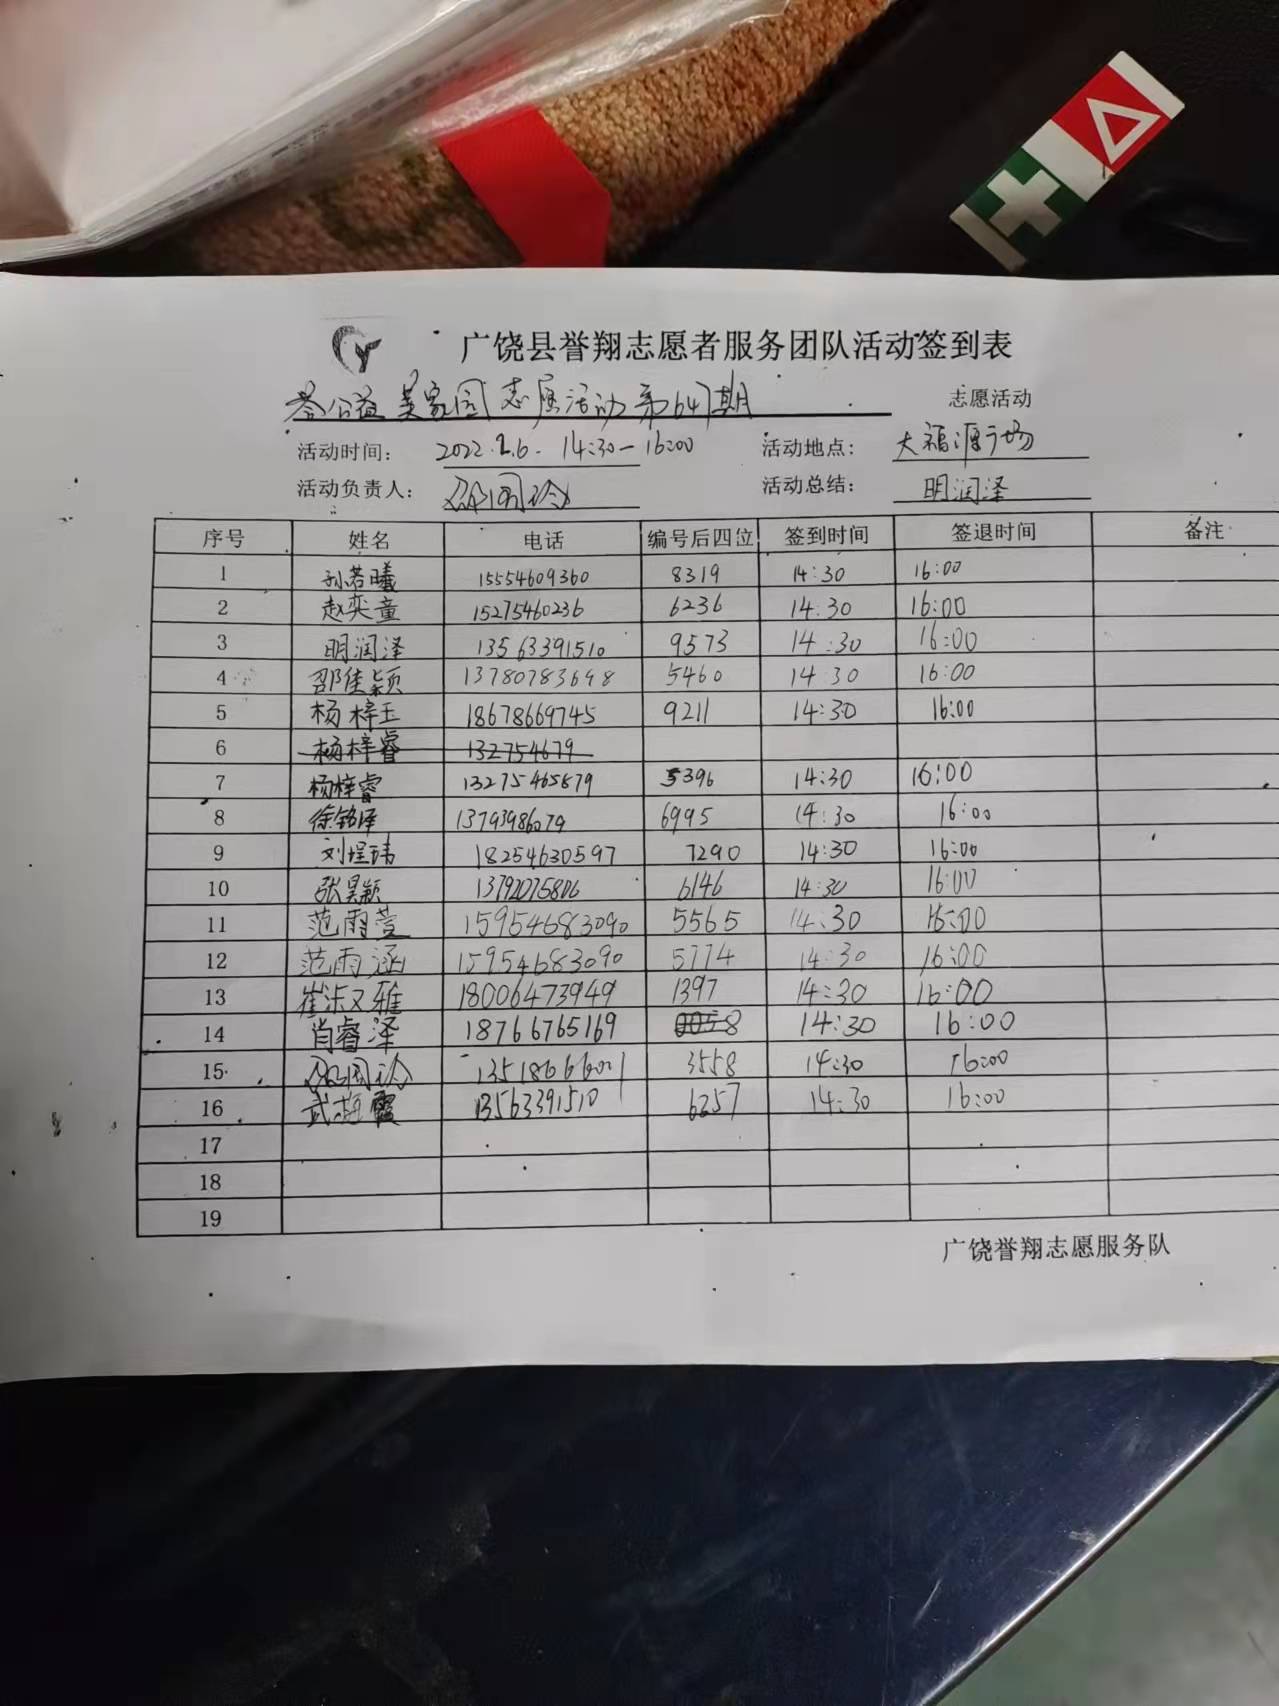 广饶县誉翔志愿者服务团队活动签到表
公益美家园志愿活动第647期 志愿活动
活动时间： 2022.2.6. 14:30-16:00 活动地点： 大福源广场
活动负责人： 活动总结： 明润泽
序号 姓名 电话 编号后四位 签到时间 签退时间 备注
1 孙若曦 15554609360 8319 14:30 16:00
2 赵奕童 15275460236 6236 14:30 16:00
3 明润泽 13563391510 9573 14:30 16:00
4 邵佳颖 13780783698 5460 14:30 16:00
5 杨梓玉 18678669745 9211 14:30 16:00
6 杨梓睿 132754679
7 杨梓睿 13275465879 5396 14:30 16:00
8 徐铭泽 13793986079 6995 14:30 16:00
9 刘埕玮 18254630597 7290 14:30 16:00
10 张昊颖 13792075806 6146 14:30 16:00
11 范雨萱 15954683090 5565 14:30 16:00
12 范雨涵 15954683090 5774 14:30 16:00
13 崔 雅 18006473949 1397 14:30 16:00
14 肖睿泽 18766765169 0058 14:30 16:00
15 13518666601 3558 14:30 16:00
16 武 霞 13563391510 6257 14:30 16:00
17
18
19
广饶誉翔志愿服务队